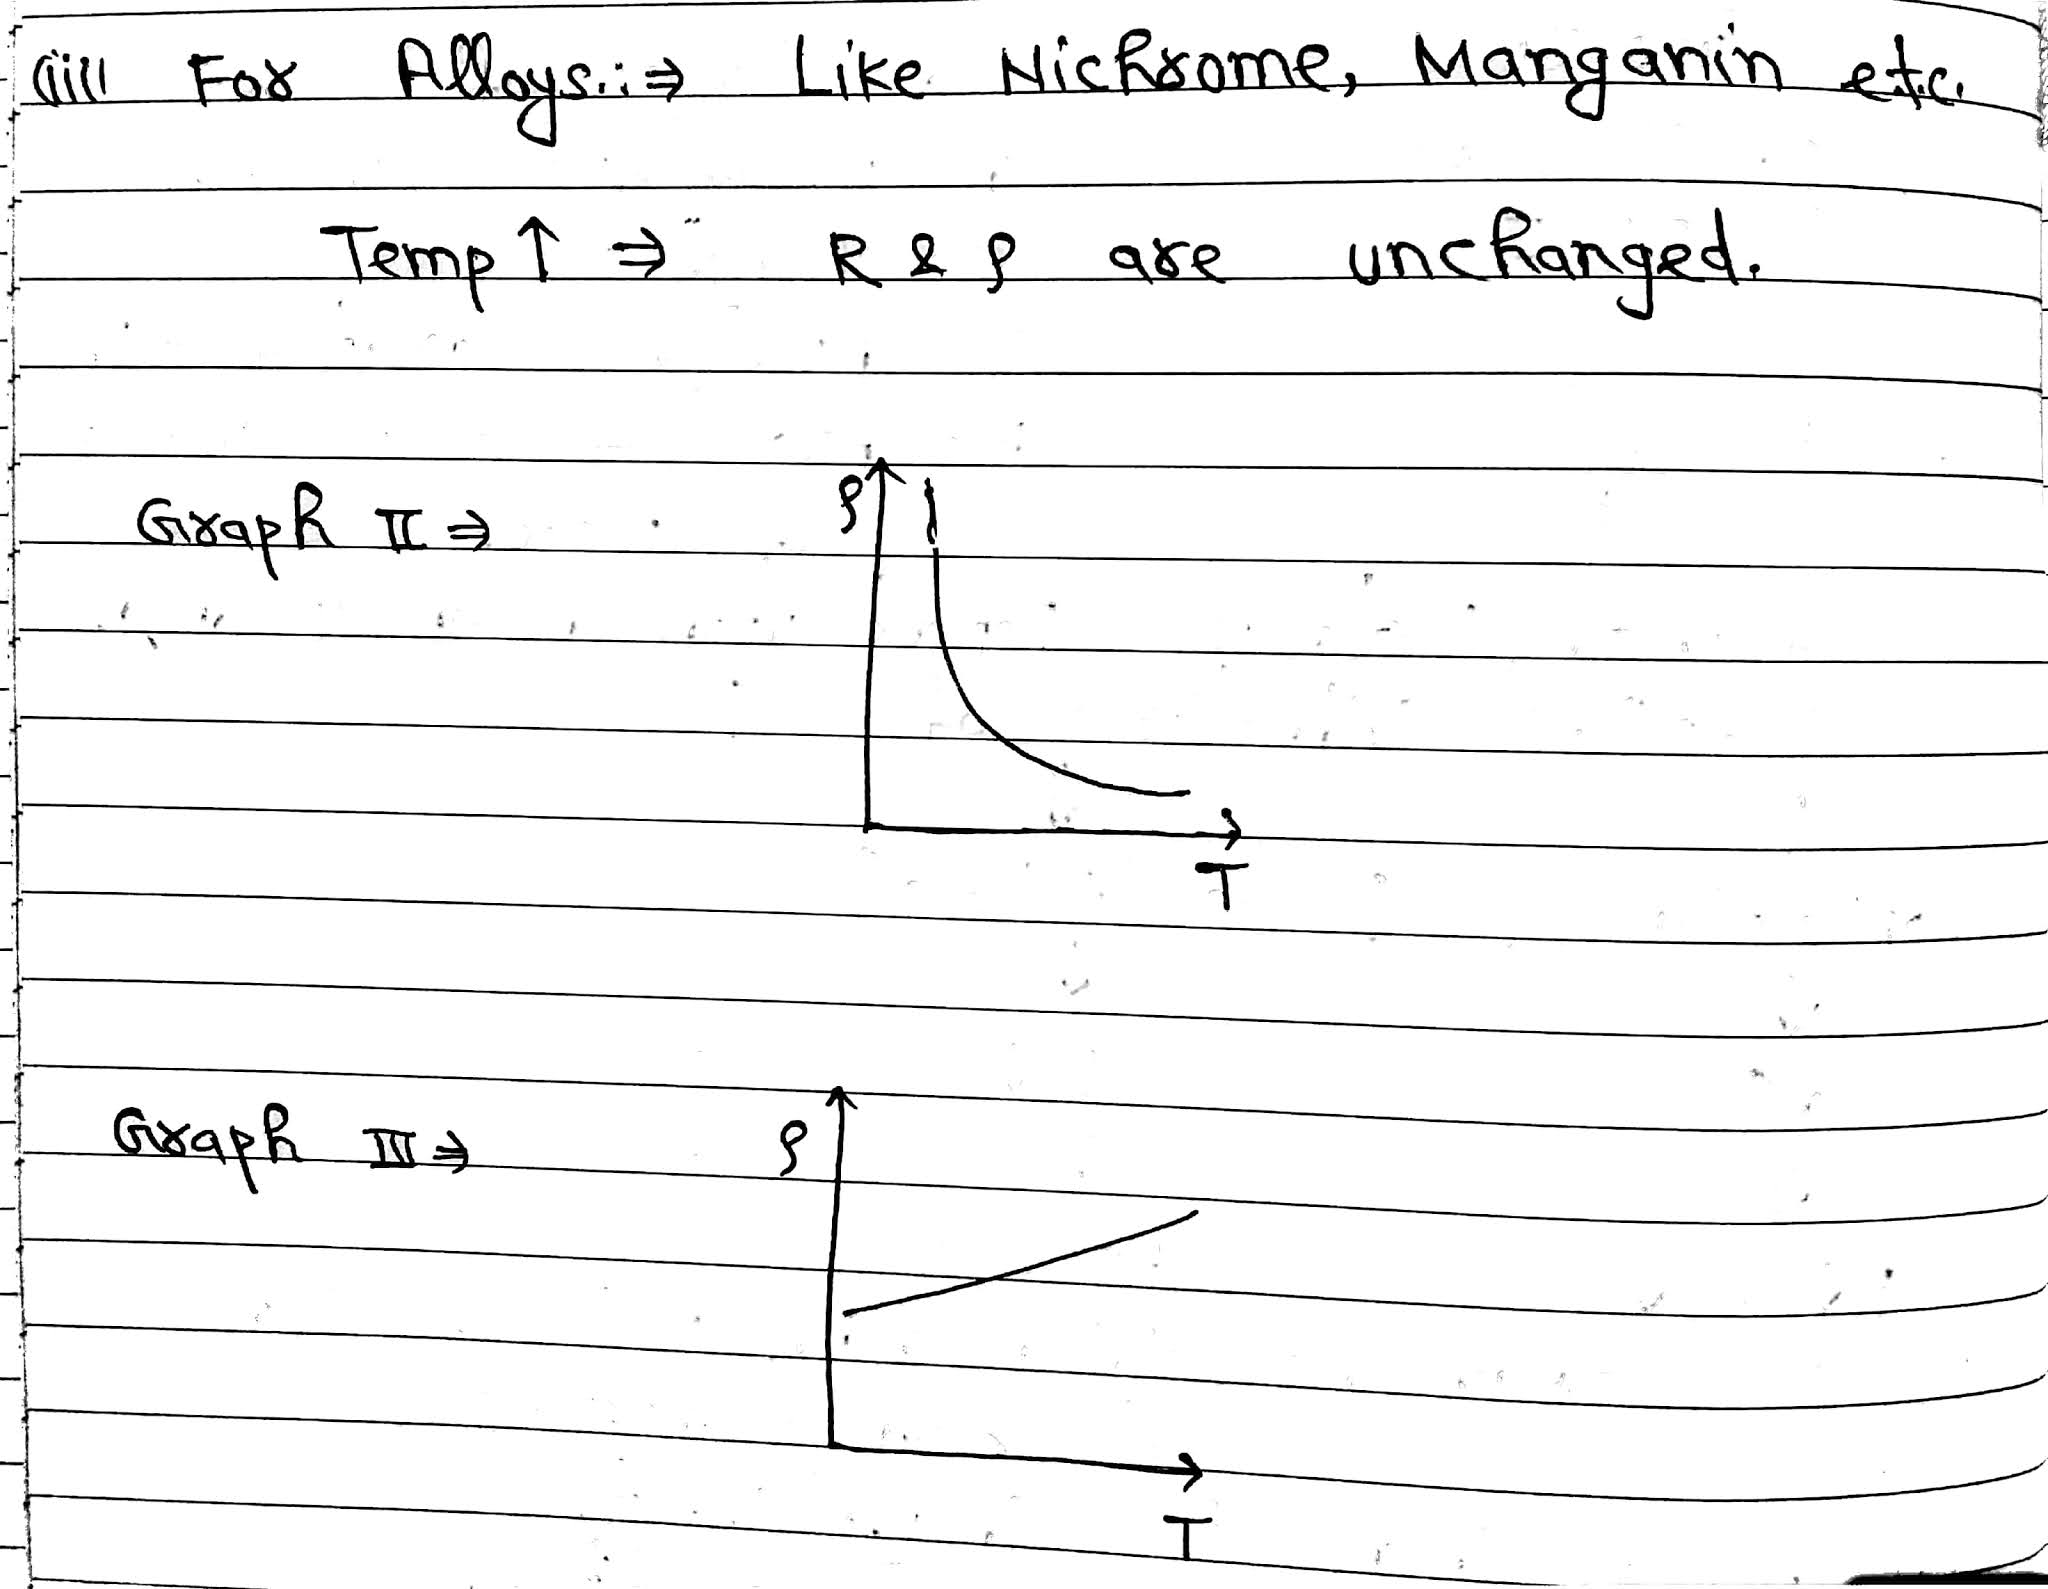 (iii) For Alloys::⇒ Like Nichrome, Manganin etc.
Temp ↑ ⇒ R & ρ are unchanged.
Graph II ⇒
ρ
T
Graph III ⇒
ρ
T